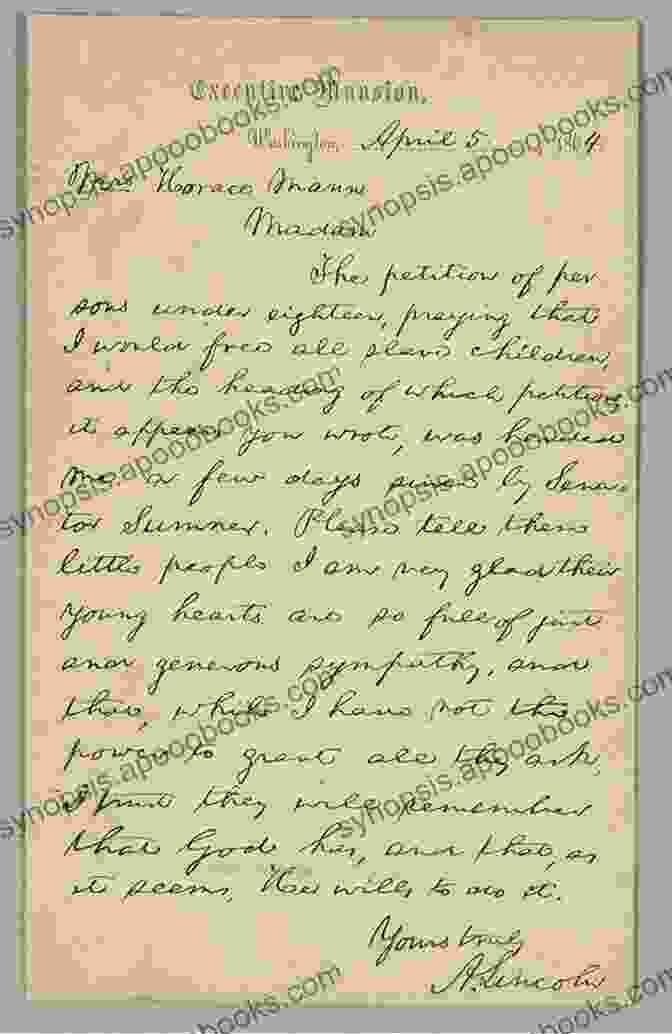 Executive Mansion,
Washington, April 5, 1864.
Mrs Horace Mann
Madam
The petition of per
sons under eighteen, praying that
I would free all slave children,
and the heading of which petition
it appears you wrote, was handed
me a few days since by Sena-
tor Sumner. Please tell these
little people I am very glad their
young hearts are so full of just
and generous sympathy, and
that, while I have not the
power to grant all they ask,
I trust they will remember
that God has, and that, as
it seems, He wills to do it.
Yours truly
A. Lincoln
synopsis.apooobooks.com
synopsis.apooobooks.com
synopsis.apooobooks.com
synopsis.apooobooks.com
synopsis.apooobooks.com
synopsis.apooobooks.com
synopsis.apooobooks.com
synopsis.apooobooks.com